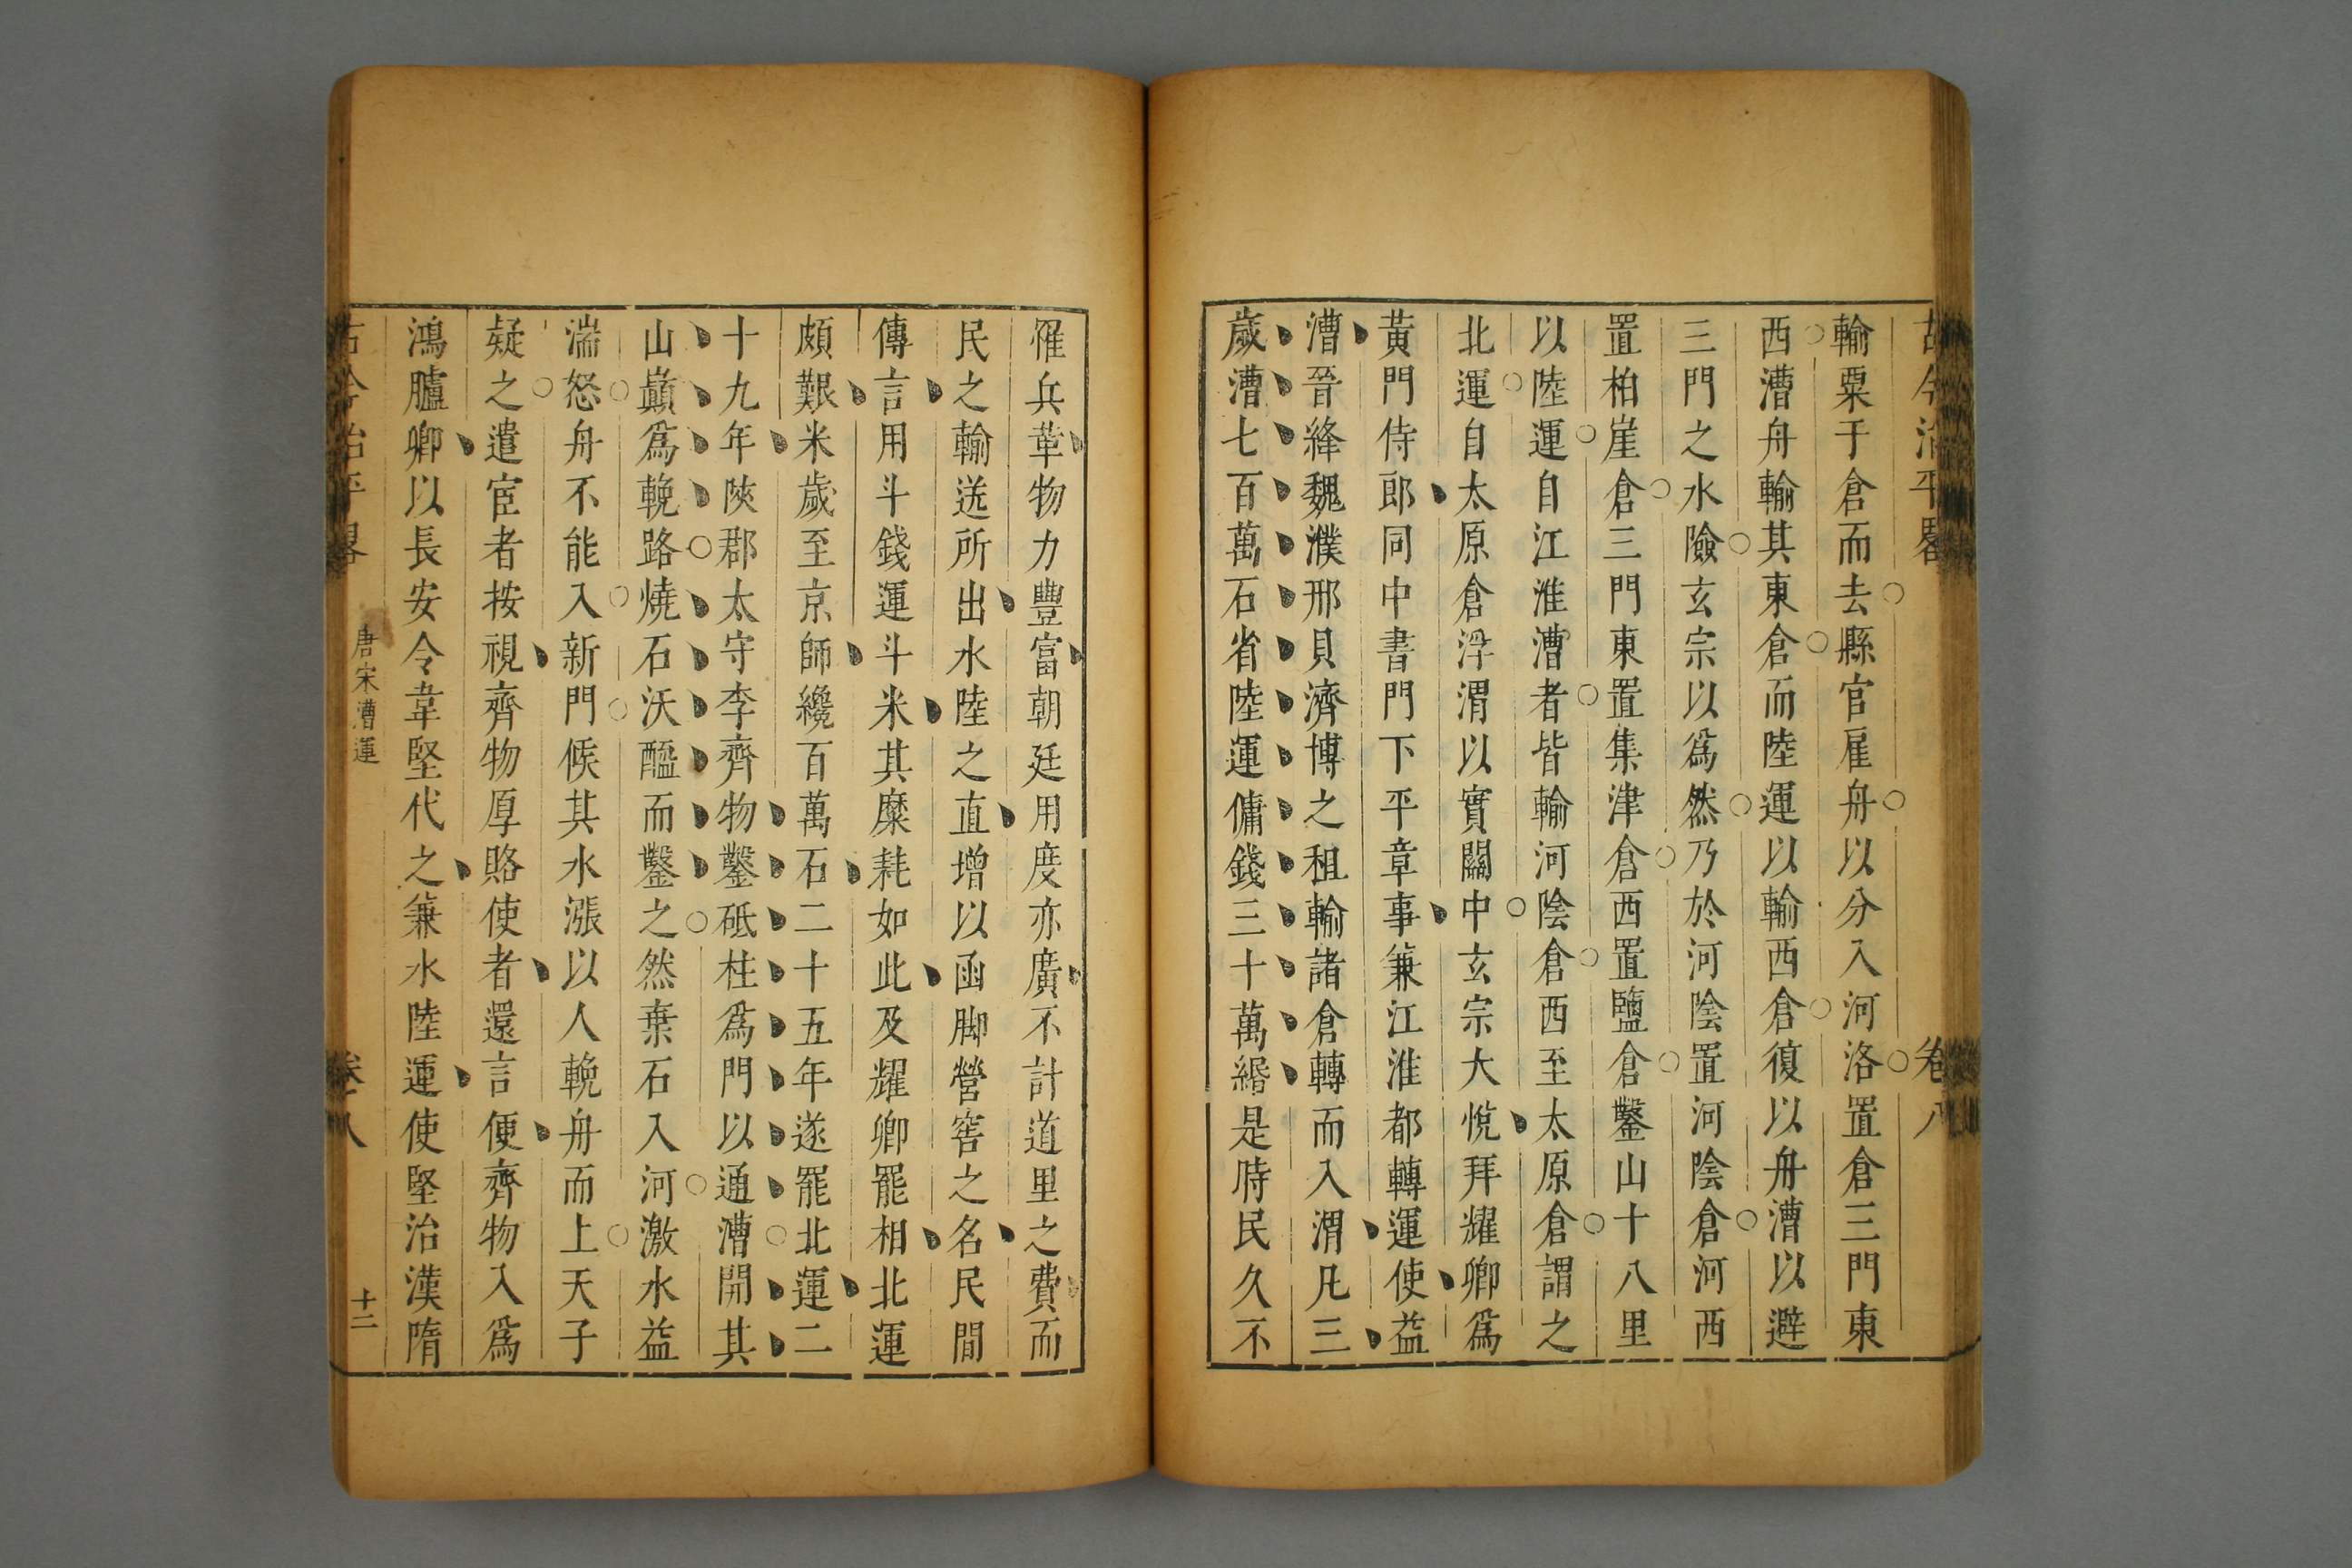 古今治平畧 卷八
輸粟于倉而去縣官雇舟以分入河洛置倉三門東
西漕舟輸其東倉而陸運以輸西倉復以舟漕以避
三門之水險玄宗以爲然乃於河陰置河陰倉河西
置柏崖倉三門東置集津倉西置鹽倉鑿山十八里
以陸運自江淮漕者皆輸河陰倉西至太原倉謂之
北運自太原倉浮渭以實關中玄宗大悅拜耀卿爲
黃門侍郎同中書門下平章事兼江淮都轉運使益
漕晉絳魏濮邢貝濟博之租輸諸倉轉而入渭凡三
歲漕七百萬石省陸運傭錢三十萬緡是時民久不
罹兵革物力豐富朝廷用度亦廣不計道里之費而
民之輸送所出水陸之直增以函脚營窖之名民間
傳言用斗錢運斗米其糜耗如此及耀卿罷相北運
頗艱米歲至京師纔百萬石二十五年遂罷北運二
十九年陝郡太守李齊物鑿砥柱爲門以通漕開其
山巔爲輓路燒石沃醯而鑿之然棄石入河激水益
湍怒舟不能入新門候其水漲以人輓舟而上天子
疑之遣宦者按視齊物厚賂使者還言便齊物入爲
鴻臚卿以長安令韋堅代之兼水陸運使堅治漢隋
古今治平畧 唐宋漕運 卷八 十二